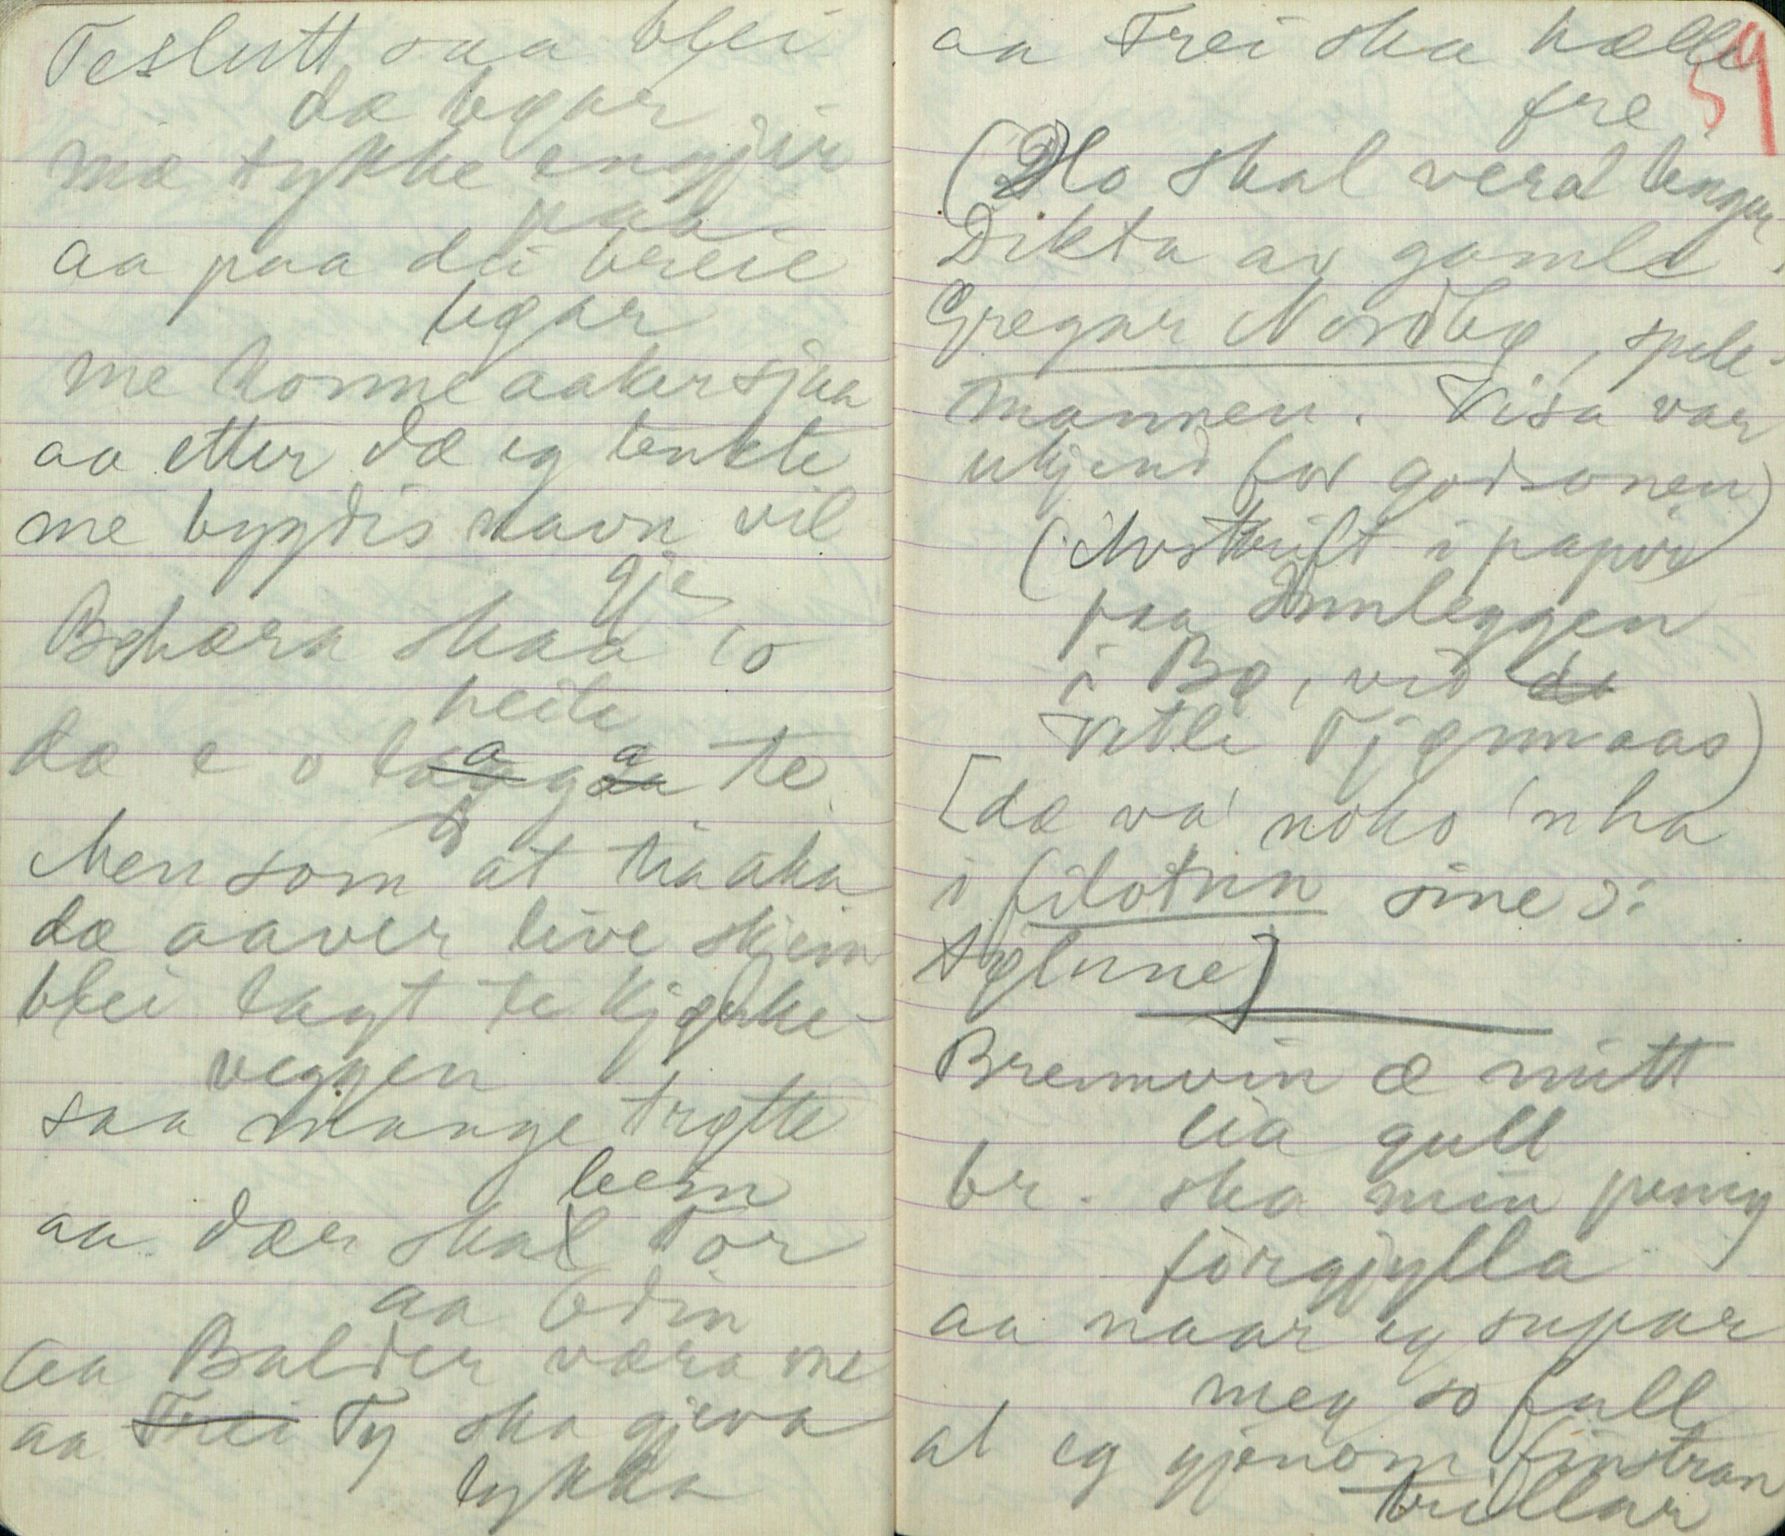 Teslutt saa blei
dæ bøar
mæ tykke engjir
paa
aa paa dei breie
bøar
me konne aaker sjaa
aa etter dæ eg tenkte
me bygdis navn vil
gje
Bøhæra skaa o
heite
dæ e o laga te
Men som at tia aka
dæ aaver live skjein
blei lagt te kjørke-
veggen
saa mange trøtte
bein
aa dær skal Tor
aa Odin
aa Balder væra me
aa Frei Ty ska gjeva
lykka
aa Frei ska hælle
fre
59
(Ho skal vera lenger
Dikta av gamle
Gregar Nordbø, spele-
mannen. Visa var
ukjend for godsonen)
(Avskrift i papir
paa Innleggen
i Bø, vid de
Vetle Tjønnaas)
[dæ va' noko 'n ha
i filotun sine ɔ:
tølune]
Brennvin æ mitt
lia gull
br. ska min pung
forgjylla
aa naar eg supar
meg so full
at eg gjenom finstran
trillar